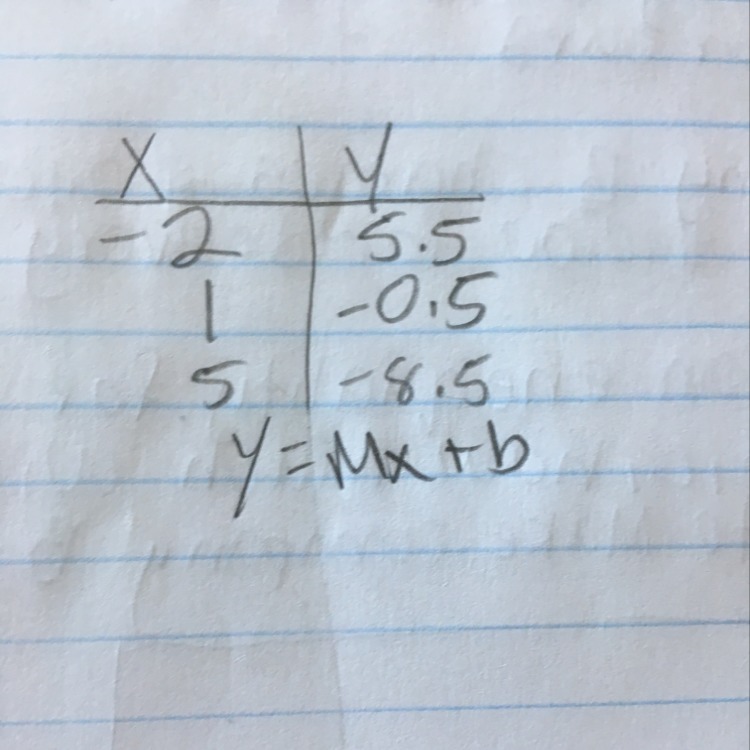 X Y
-2 5.5
1 -0.5
5 -8.5
y=Mx+b